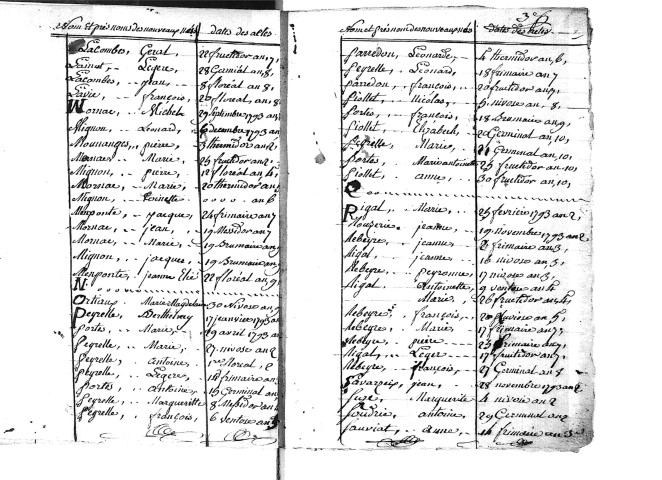 Nom et prénoms des nouveaux nés dates des actes
Lacombes, Geral, 22 fructidor an 7,
Lainot, Legere, 28 Germinal an 8,
Lacombes, jean, 8 floréal an 8,
François, 20 floréal an 8,
Mornac, Michel, 29 Septembre 1793 an
Mignon, Leonard, 6 decembre 1793 an
Mounanges, pierre, 3 thermidor an 2
Mornac, Marie, 25 fructidor an 2
Mignon, pierre, 12 floréal an 4,
Mornac, Marie, 20 thermidor an
Mignon, Toinette an 6
Menponte, jacque, 24 frimaire an 7
Mornac, jean, 19 Messidor an 7
Mornac, Marie, 19 Brumaire an
Mignon, jacques, 19 Brumaire an
Menponte, jeanne 22 floréal an 9
N
Ortiau, Marie Magdeleine 30 Nivose an
Peyrelle, Berthelemy 17 janvier 1793 an
porte, Marie, 19 avril 1793 an
Peyrelle, Marie, 27 nivose an 2
Peyrelle, Antoine, 1er floreal, 2
Peyrelle, Legere, 14 frimaire an
Portes, Antoine, 19 Germinal an
Peyrelle, Margueritte 8 Messidor an
Peyrelle, françois, 6 ventose an
Nom et prénoms des nouveaux nés dates des actes
Parredon, Leonarde, 4 thermidor an 6,
Peyrelle, Leonard, 18 frimaire an 7
parredon, françois, 20 fructidor an 7,
Piollet, Nicolas, 9 nivose an 8,
Portes, françois, 18 Brumaire an 9,
Piollet, Elizabeth, 20 Germinal an 10,
Peyrelle, Marie, 21 Germinal an 10,
Portes, Marie antoinette 25 fructidor an 10,
Piollet, anne, 30 fructidor an 10,
Q
Rigal, Marie, 25 fevrier 1793 an 2,
jeanne, 19 novembre 1793 an 2
Rebeyre, jeanne, frimaire an 3,
Rigal, jeanne, 16 nivose an 3,
Rebeyre, peyronne, 17 nivose an 3,
Rigal, Antoinette, 9 ventose an 4,
Marie, 26 fructidor an 4,
Rebeyre, françois, pluviose an 5,
Rebeyre, Marie, 17 frimaire an 7,
Rebeyre, pierre, 23 frimaire an 7,
Rigal, Leger, 17 fructidor an 7,
Rebeyre, françois, 27 Germinal an 8
jean, 28 novembre 1793 an 2
Marguerite 4 nivose an 2
Soudrie, antoine, 29 Germinal an 2
Sauviat, anne, 14 frimaire an 3